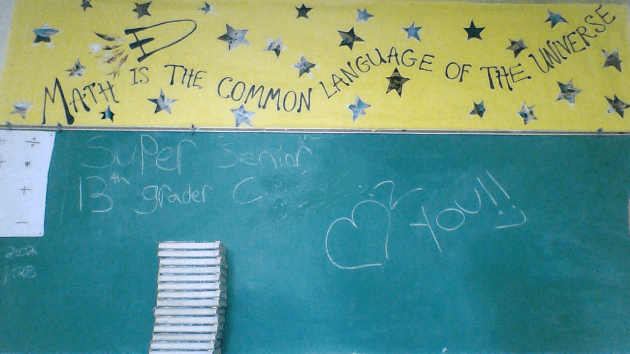 MATH IS THE COMMON LANGUAGE OF THE UNIVERSE
Super Senior
13th grader
YOU!!